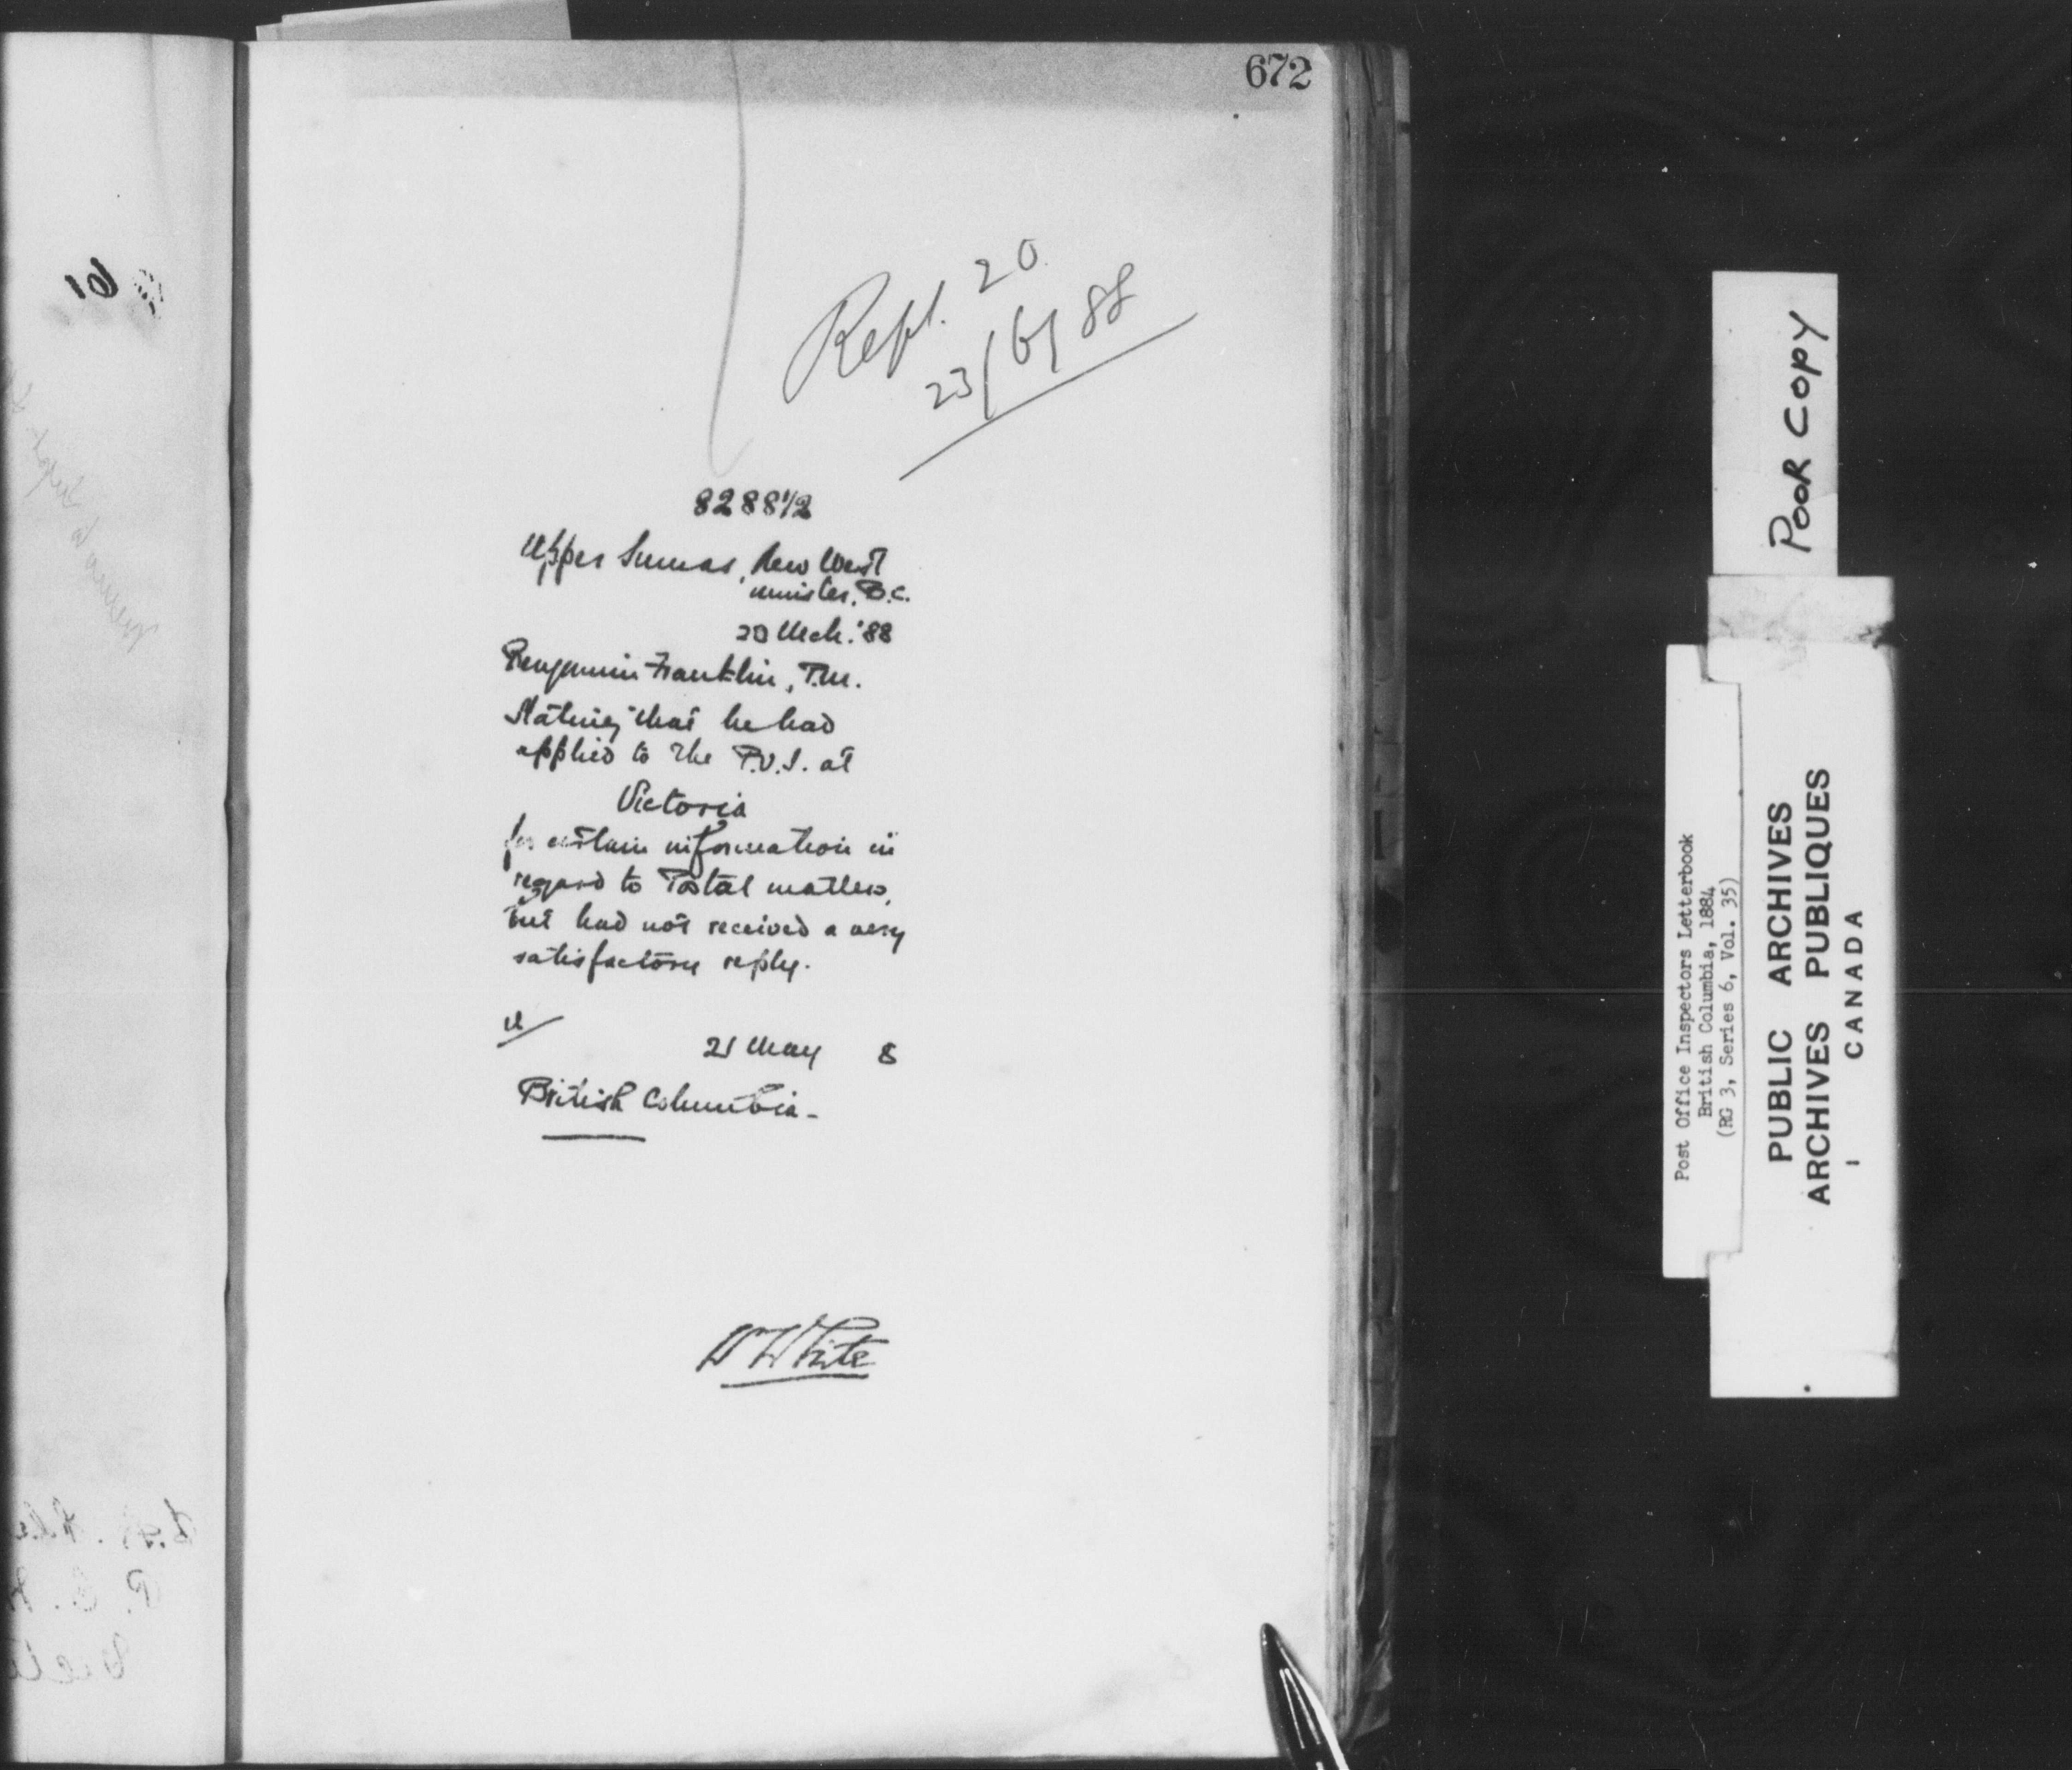 672
Repl. 20
23/6/88
8288 1/2
Upper Sumas, New West
minister, B.C.
20 Mch. '88
Benjamin Franklin, P.M.
Stating that he had
applied to the P.O.I. at
Victoria
for certain information in
regard to Postal matters,
but had not received a very
satisfactory reply.
21 May 8
British Columbia-
W White
POOR COPY
Post Office Inspectors Letterbook
British Columbia, 1884
(RG 3, Series 6, Vol. 35)
PUBLIC ARCHIVES
ARCHIVES PUBLIQUES
CANADA